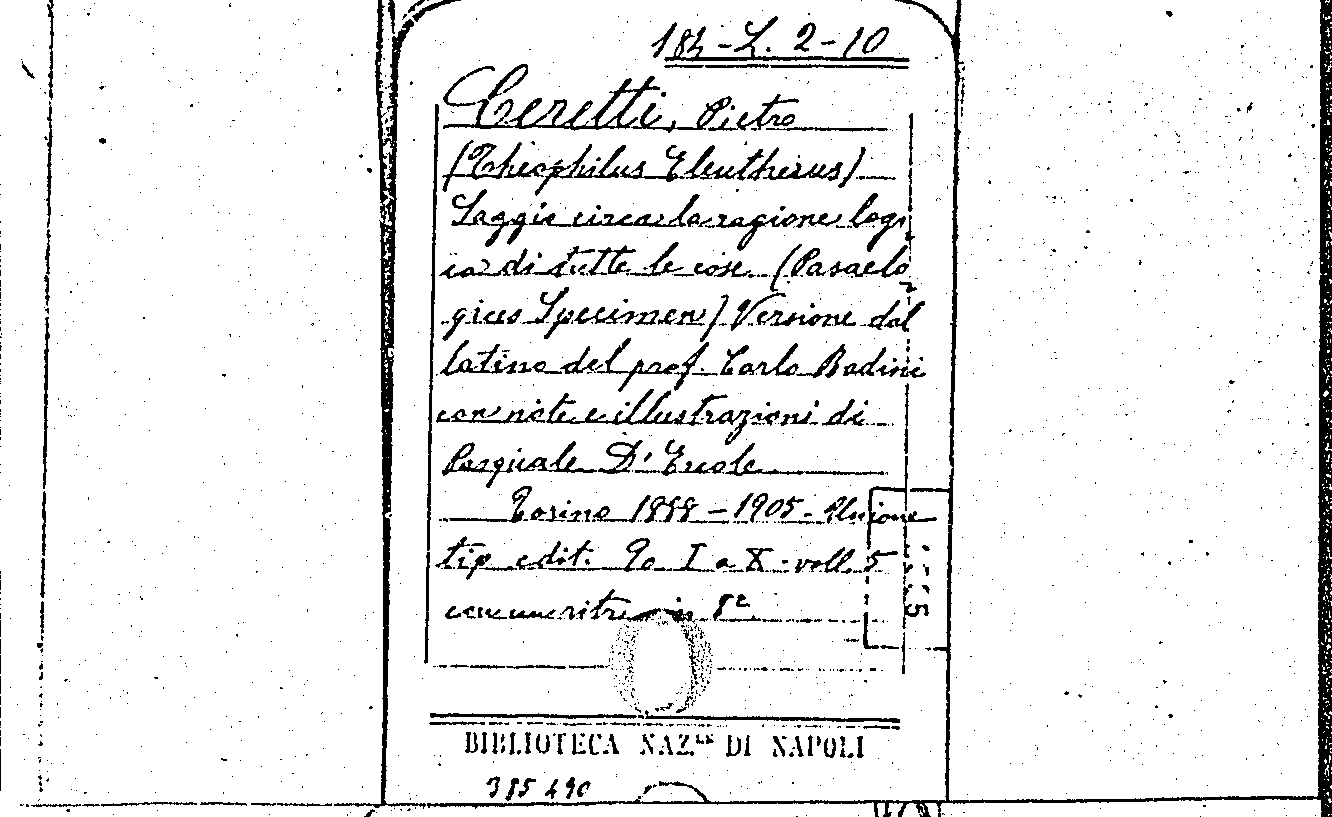 184-L. 2-10
Ceretti, Pietro
(Theophilus Eleutherus)
Saggio circa la ragione logi
ca di tutte le cose. (Pasaelo
gices Specimen) Versione dal
latino del prof. Carlo Badini
con note e illustrazioni di
Pasquale D'Ercole
Torino 1888-1905- Unione
tip edit. To I a X-voll. 5
con un ritr. in 8º
BIBLIOTECA NAZ.LE DI NAPOLI
385490